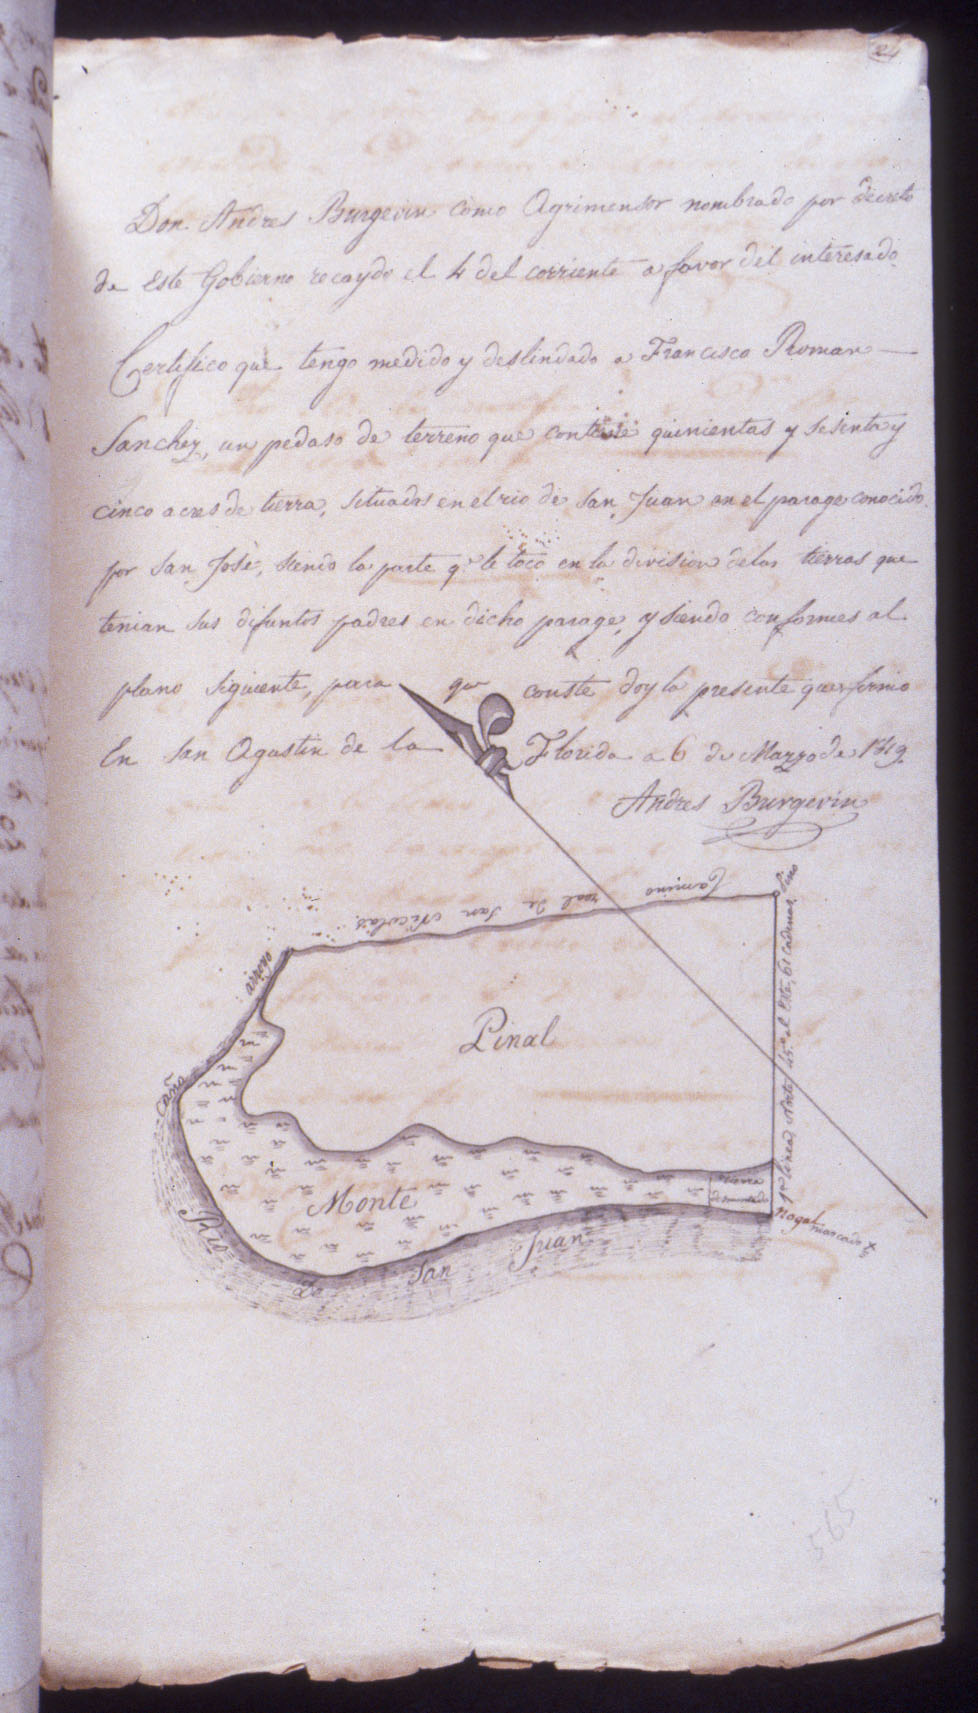 24
Don Andres Burgevin como Agrimensor nombrado por decreto
de este Gobierno recaydo el 4 del corriente a favor del interesado.
Certifico que tengo medido y deslindado a Francisco Roman
Sanchez, un pedaso de terreno que contiene quinientas y sesenta y
cinco acres de tierra, situadas en el rio de San Juan en el parage conocido
por San Josè, siendo la parte qe. le toco en la division de las tierras que
tenian sus difuntos padres en dicho parage, y siendo conformes al
plano siguiente, para que conste doy la presente que firmo
En San Agustin de la Florida a 6 de Marzo de 1819.
Andres Burgevin
Camino real de San Nicolas
Pino
arroyo
1a. linea, Norte 45º. al Este, 61 Cadenas
Pinal
Caña
Monte
Tierra
desmontada
Nogal marcado
Rio De San Juan
565